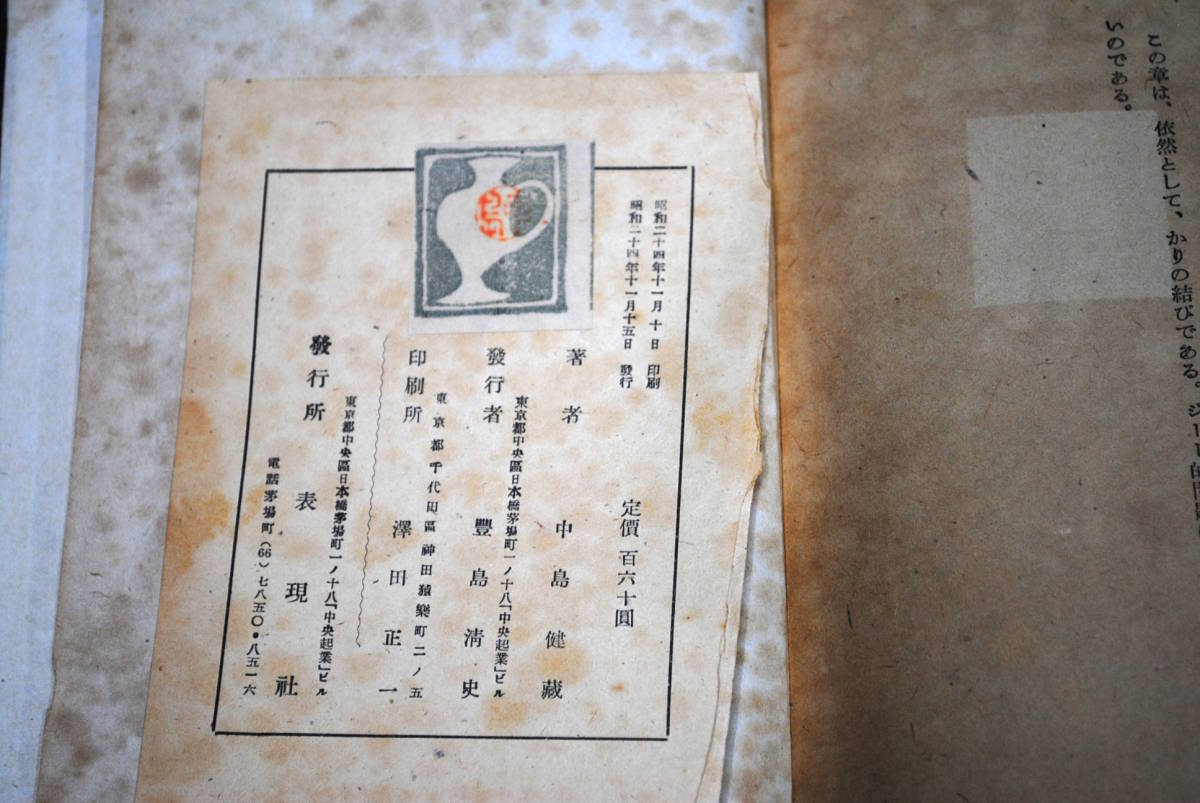 この章は、依然として、かりの結びである
いのである。
昭和二十四年十一月十日 印刷
昭和二十四年十一月十五日 發行
定價 百六十圓
著者 中島健藏
東京都中央區日本橋茅場町一ノ十八「中央起業」ビル
發行者 豐島淸史
東京都千代田區神田猿樂町二ノ五
印刷所 澤田正一
東京都中央區日本橋茅場町一ノ十八「中央起業」ビル
發行所 表現社
電話茅場町(66)七八五〇・八五一六